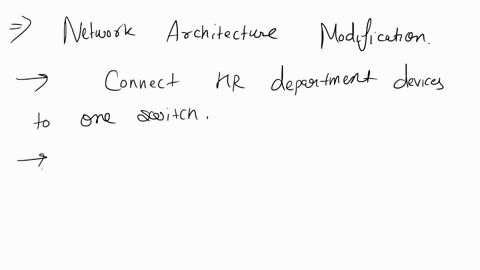 ⇒ Network Architecture Modification.
→ Connect HR department devices
to one switch.
→